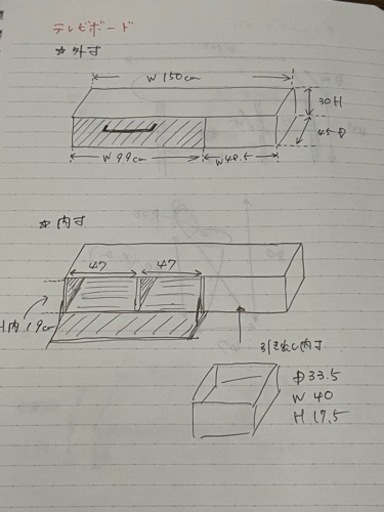 テレビボード
☆外寸
W 150cm
30H
45D
W 99cm
W48.5
☆内寸
47
47
H内19cm
引き出し内寸
D 33.5
W 40
H 17.5